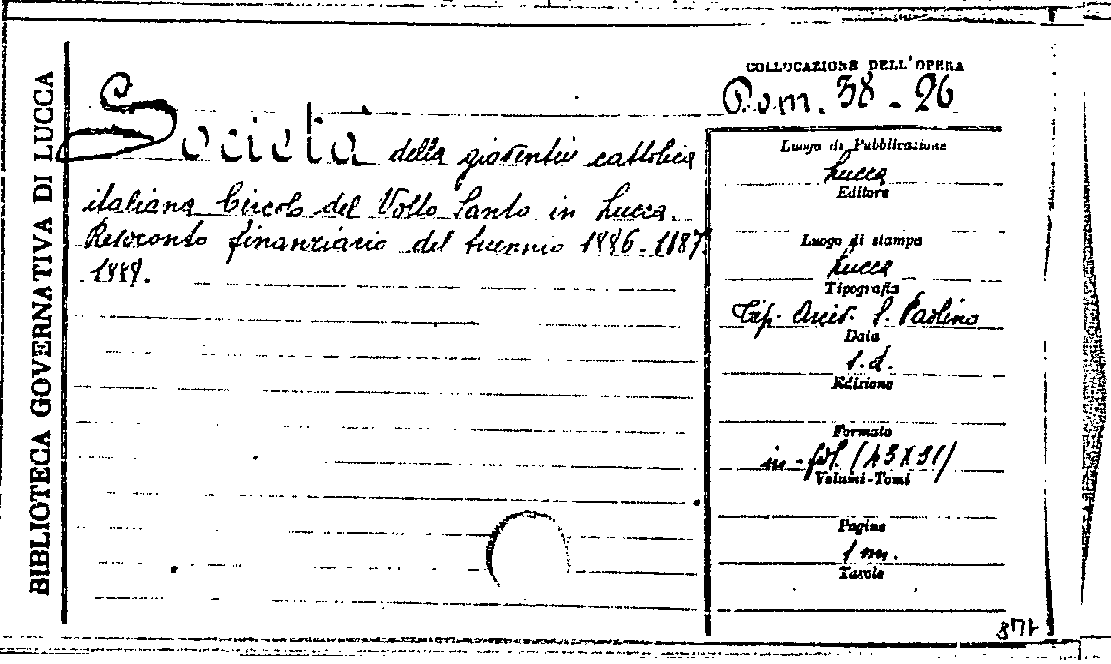 BIBLIOTECA GOVERNATIVA DI LUCCA
COLLOCAZIONE DELL'OPERA
38-26
Società della gioventù cattolica
italiana Circolo del Volto Santo in Lucca.
Resoconto finanziario del triennio 1886-1887
1888.
Luogo di Pubblicazione
Lucca
Editore
Luogo di stampa
Lucca
Tipografia
Tip. Arciv. S. Paolino
Data
s.d.
Edizione
Formato
in-fol. (43X31)
Volumi-Tomi
Pagine
1 m.
Tavole